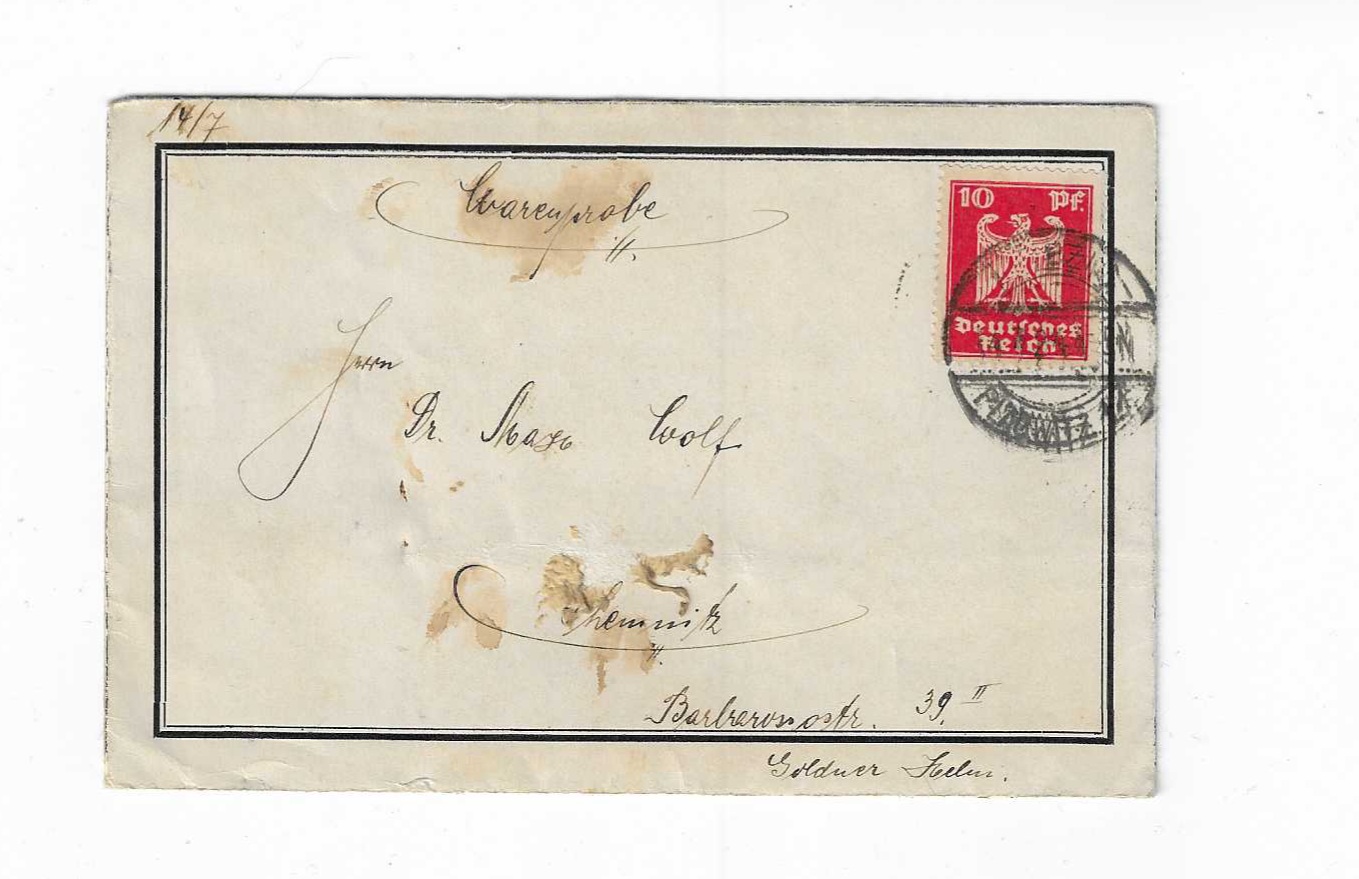 14/7
Warenprobe
10 Pf.
Deutsches
Reich
Herrn
Dr. Max Wolf
Chemnitz
Barbarossastr. 39. II
Goldner Helm.